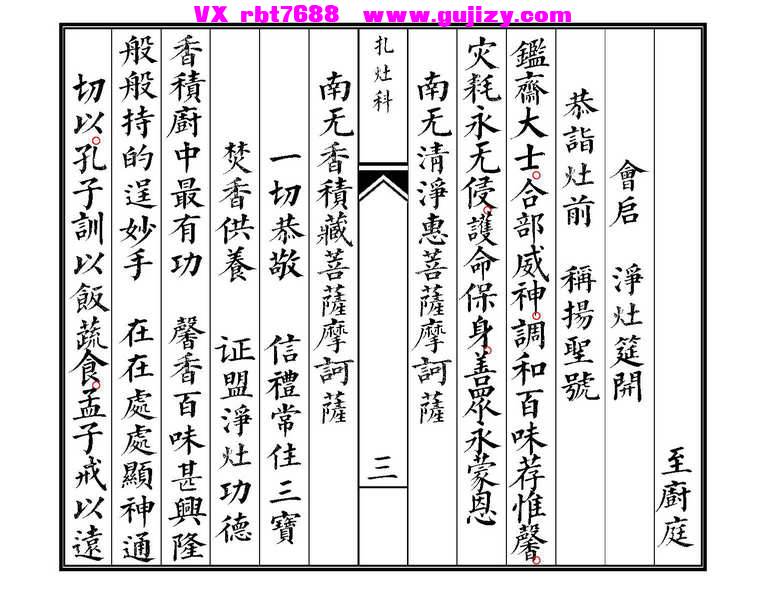 VX rbt7688 www.gujizy.com
至廚庭
會启 淨灶筵開
恭詣灶前 稱揚聖號
鑑齋大士。合部威神。調和百味荐惟馨。
灾耗永无侵。護命保身。善眾永蒙恩
南无清淨惠菩薩摩訶薩
扎灶科 三
南无香積藏菩薩摩訶薩
一切恭敬 信禮常住三寶
焚香供養 证盟淨灶功德
香積廚中最有功 馨香百味甚興隆
般般持的逞妙手 在在處處顯神通
切以。孔子訓以飯蔬食。孟子戒以遠